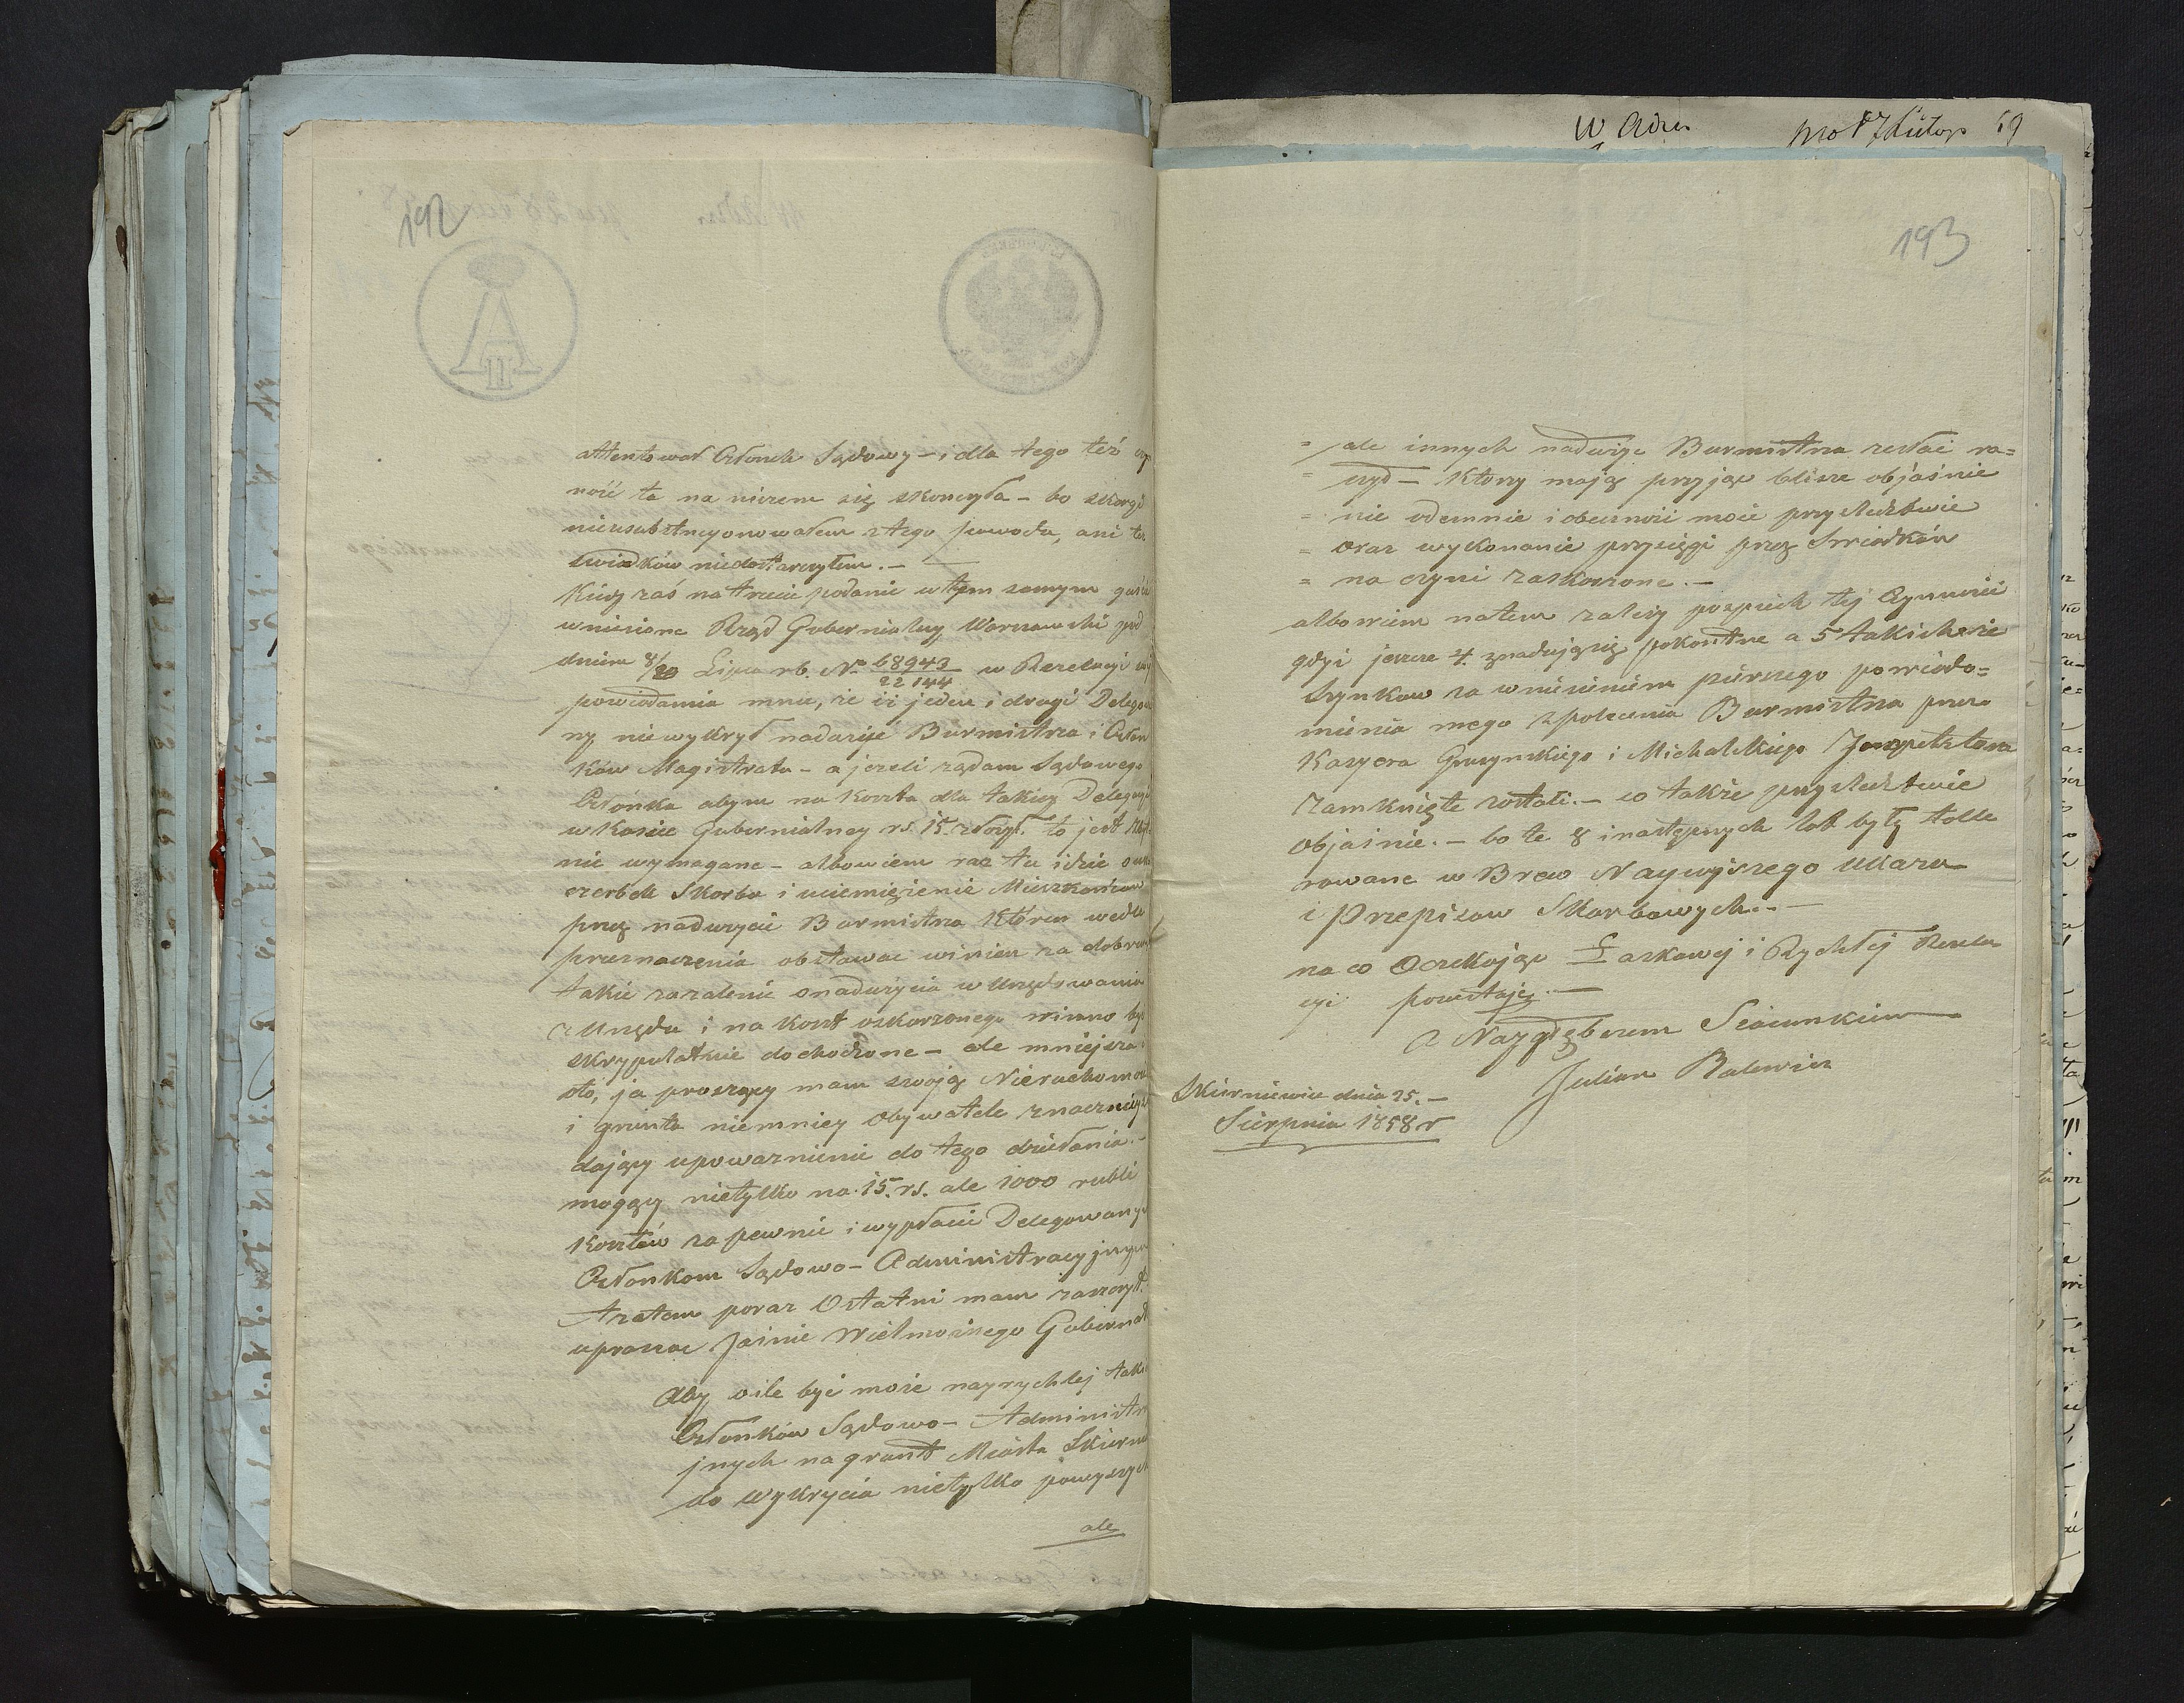 192
attentował Członek Sądowy – i dla tego też czyn
ność ta na niczem się skonczyła – bo skargi
nieusubstncyonowałem z tego powodu, ani też
swiadków niedostarczyłem. –
Kiedy zaś na trzecie podanie w tym samym guście
wniesione Rząd Gubernialny Warszawski pod
dniem 8/20 Lipca rb. No 68943/22144 w Rezolucji
powiadamia mnie, że iż jeden i drugi Delegowa
ny niewykrył nadużyć Burmistrza i Człon
ków Magistratu – a jeżeli żądam Sądowego
Członka abym na koszta dla takiej Delegacji
w Kassie Gubernialney rs. 15. złożył. to jest
nie wymagane – albowiem raz tu idzie o
szerbek Skarbu i uciemiężenie Mieszkańców
przez nadużycie Burmistrza który wedle
przeznaczenia obstawac winien za dobrem
takie zazalenie o nadużycia w Urzędowaniu
z Urzędu i na koszt oskarzonego winno być
skrypulatnie dochodzone – ale mniejsza
oto, ja proszący mam swoją Nieruchomość
i grunta niemniey Obywatele znaczniejsi
dający upoważnienie do tego działania. –
mogący nietylko na 15. rs. ale 1000 rubli
kosztów zapewnić i wypłacić Delegowanym
Członkom Sądowo – Administracyjnym
Azatem poraz Ostatni mam zaszczyt
upraszac Jaśnie Wielmożnego Gubernat
Aby o ile być może nayrychlej takich
Członków Sądowo – Administra
jnych na grunt Miasta Skiernie
do wykrycia nietylko powyższych
ale
W Adm
69
193
= ale innych nadużyć Burmistrza zesłać ra=
= czył – którzy mają przyjąc bliższe objaśnie
= nie odemnie i obecność moie przy sledztwie
= oraz wykonanie przysięgi przez Swiadków
= na czyni zaskarzone. –
albowiem natem zależy pospiech tej Czynności
gdyż jeszcze 4. znadują się pokontne a 5 takichże
Szynkow za wniesieniem pierszego powiado=
mienia mego z polecenia Burmistrza przez
Kasyera Gruzynskiego i Michalskiego Inspektora
zamknięte zostali. – co także przy sledztwie
objaśnie. – bo te 8 i następnych lat były tolle
rowane w Brew Naywyższego Ukazu
i Przepisow Skarbowych. –
na co Oczekując Łaskawej i Rychłej Rezolu
cyi pozostaję. –
z Naygłębszem Szacunkiem
Julian Balewicz
Skierniewice dnia 25. –
Sierpnia 1858 r